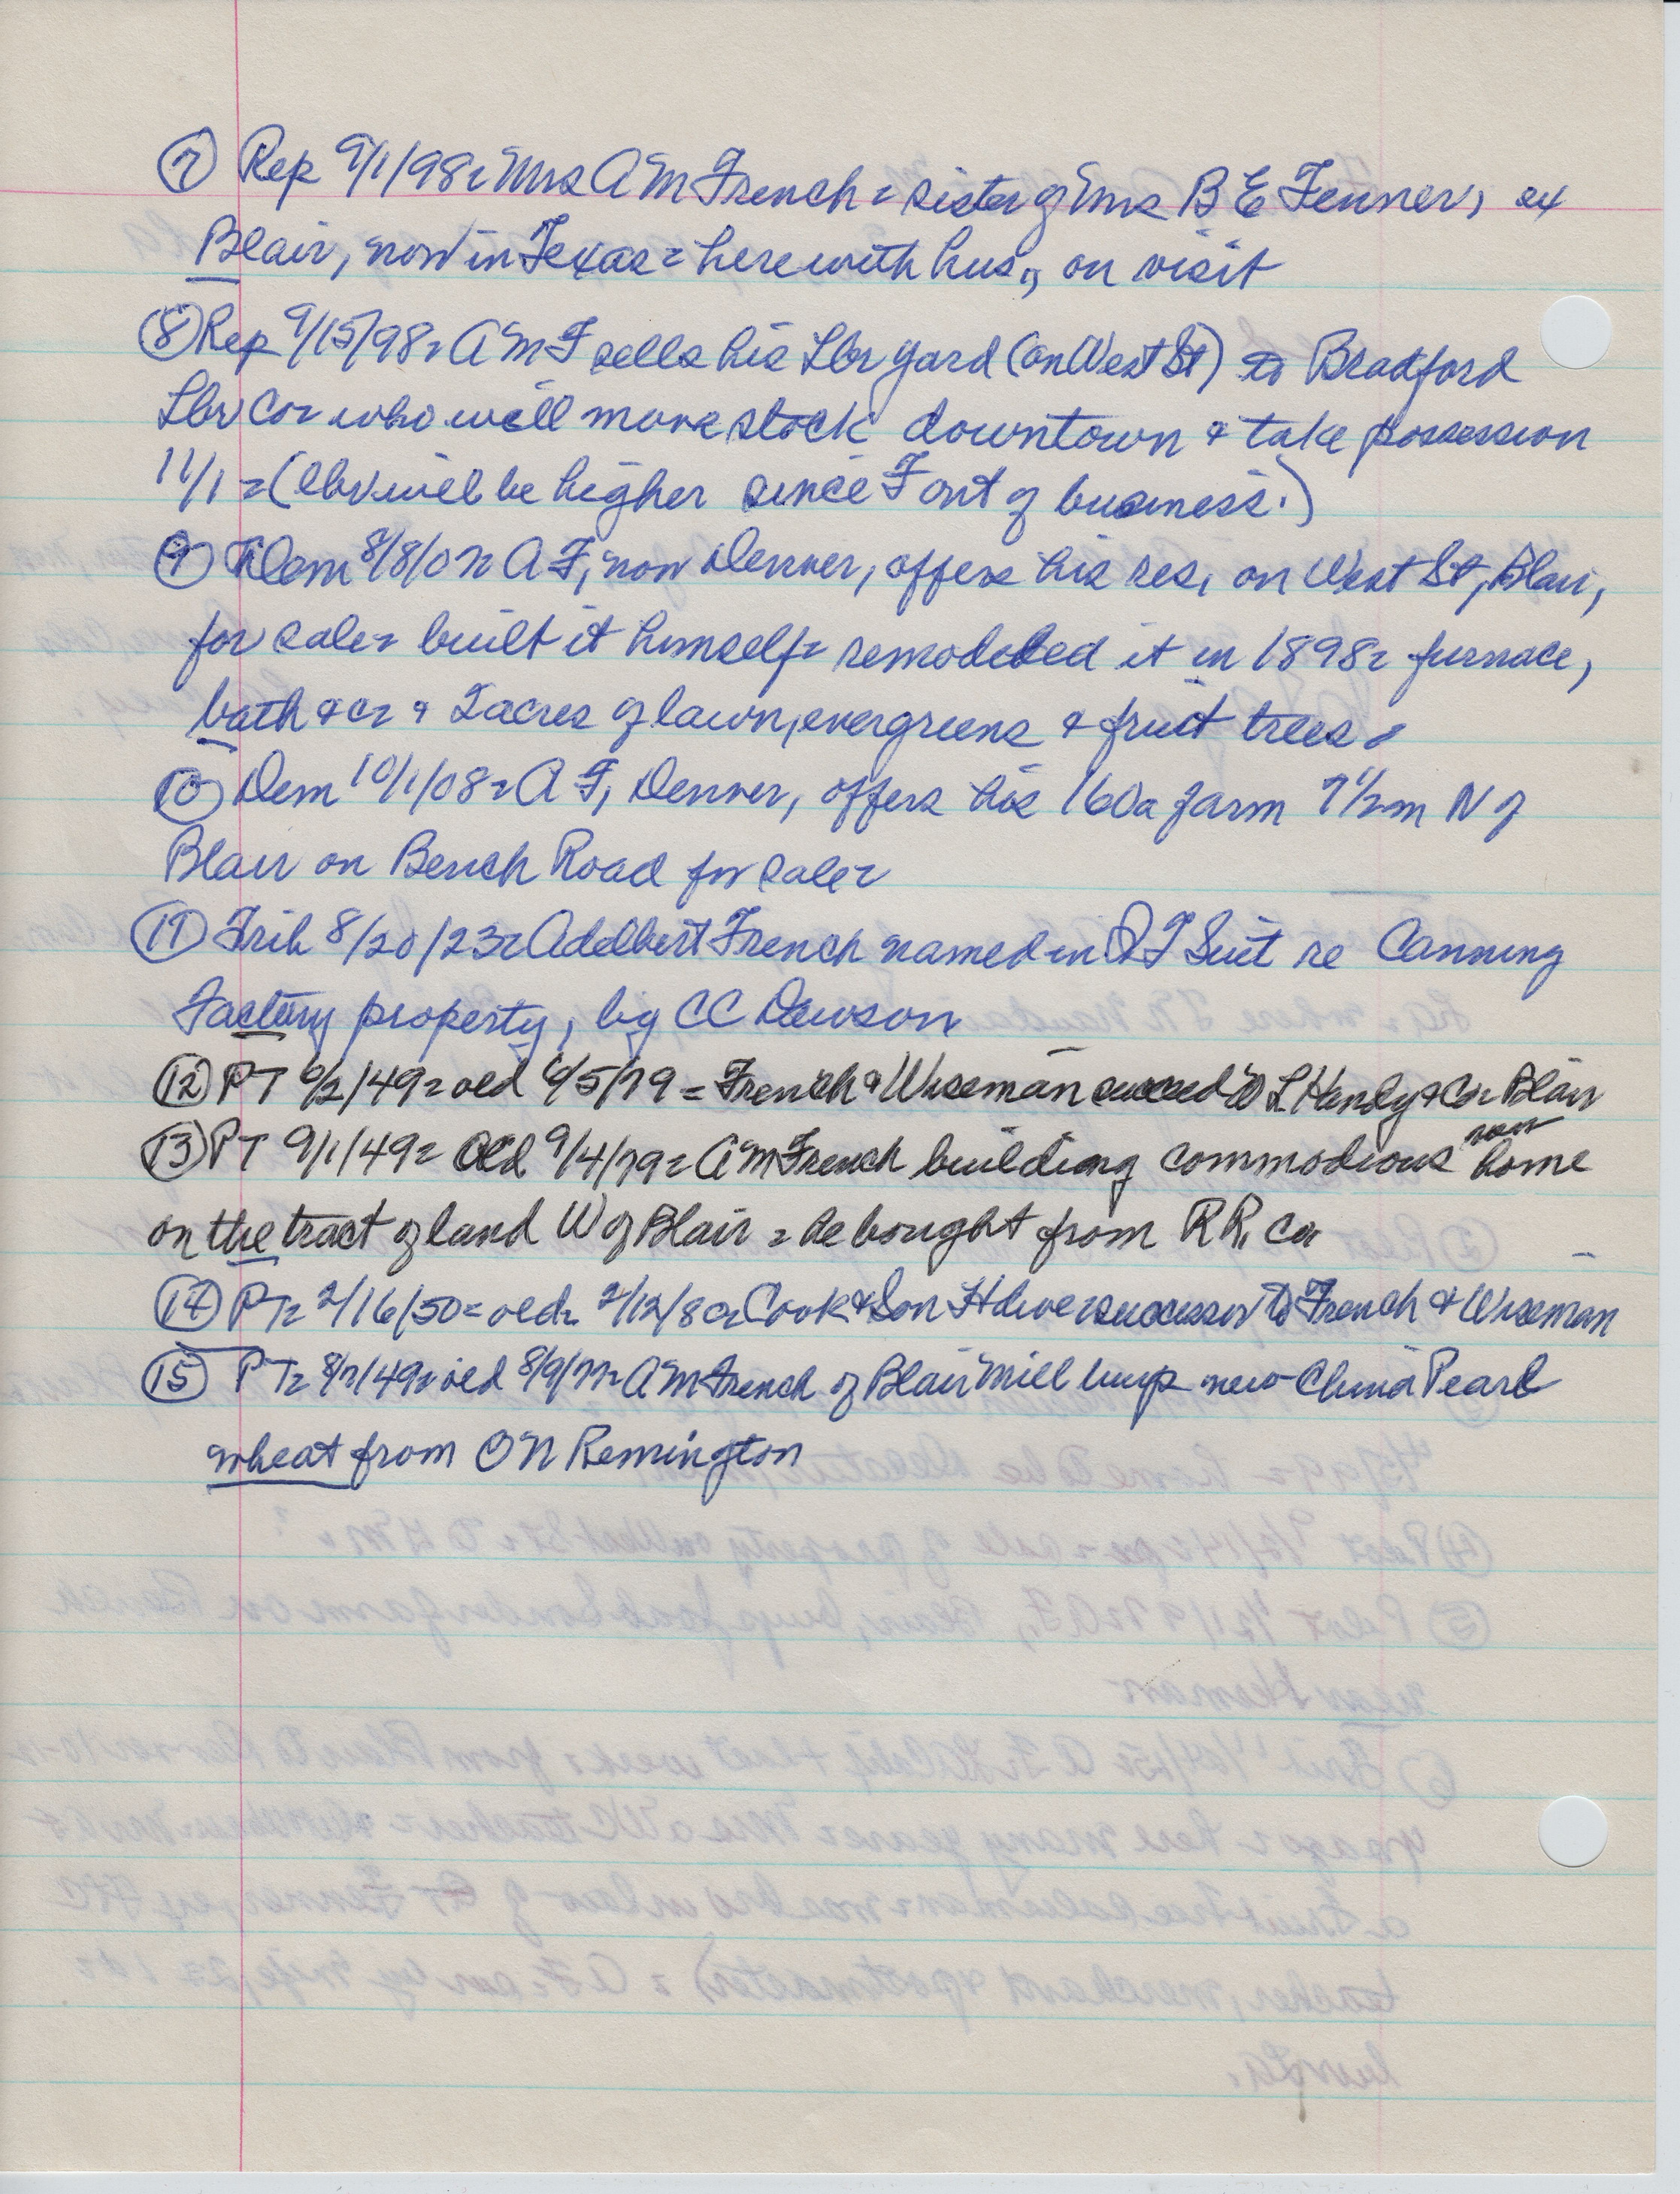 ⑦ Rep 9/1/98 = Mrs A M French = sister of Mrs B E Fenner, ex
Blair, now in Texas = here with hus., on visit
⑧ Rep 9/15/98 = A M F sells his Lbr yard (on West St) to Bradford
Lbr Co = who will move stock downtown & take possession
11/1 = (lbr will be higher since F out of business.)
⑨ Dem 8/8/07 = A F, now Denver, offers his res, on West St, Blair,
for sale = built it himself = remodeled it in 1898 = furnace,
bath &c = & 2 acres of lawn, evergreens & fruit trees =
⑩ Dem 10/1/08 = A F, Denver, offers his 160a farm 7 1/2 m N of
Blair on Bench Road for sale =
⑪ Trib 8/20/23 = Adelbert French named in Q T Suit re Canning
Factory property, by C C Dawson
⑫ PT 6/2/49 = old 6/5/79 = French & Wiseman succeed to L Handy & Co = Blair
⑬ PT 9/1/49 = old 9/4/79 = A M French building commodious new home
on the tract of land W of Blair = he bought from R R, Co
⑭ PT = 2/16/50 = old = 2/12/80 = Cook & Son Hdwe = successor to French & Wiseman
⑮ PT = 8/7/49 = old 8/9/77 = A M French of Blair Mill buys new China Pearl
wheat from O N Remington